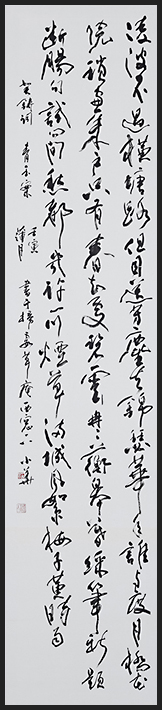 凌波不過橫塘路但目送芳塵去錦瑟華年誰與度月橋花
院瑣窗朱戶只有春知處碧雲冉冉蘅皋暮彩筆新題
斷腸句試問閑愁都幾許一川煙草滿城風絮梅子黃時雨
賀鑄詞 青玉案 壬寅